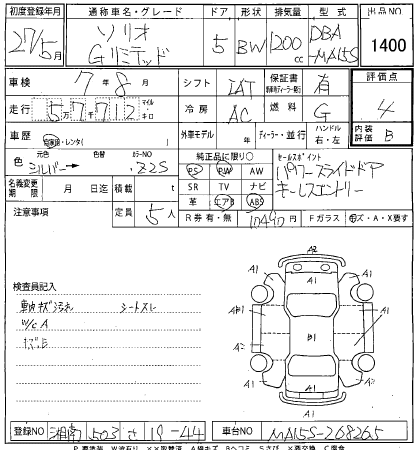 初度登録年月 通称車名・グレード ドア 形状 排気量 型式 出品NO
27/5月 ソリオ Gリミテッド 5 BW 1200cc DBA-MA15S 1400
車検 7年8月 シフト IAT 保証書 有 評価点
走行 5万7千712 マイル キロ 冷房 AC 燃料 G 4
車歴 自家用・レンタ( ) 外車モデル 年 ディーラー・並行 ハンドル 右・左 内装評価 B
色 元色 シルバー 色替 カラーNO Z2S 純正品に限り○ セールスポイント
名義変更期限 月 日迄 積載 t PS PW AW パワースライドドア
SR TV ナビ キーレスエントリー
注意事項 定員 5人 革 エアB ABS
R券 有・無 10490円 Fガラス ・A・X要す
A2
A1 A1
検査員記入
シートスレ
W/CA
A1 A1
AB1 B1 A1
A1
A1
登録NO 湘南 503 さ 19-44 車台NO MA15S-268265